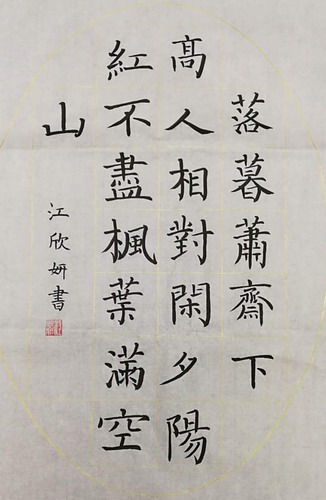 落暮蕭齋下
高人相對閑夕陽
紅不盡楓葉滿空
山
江欣妍書